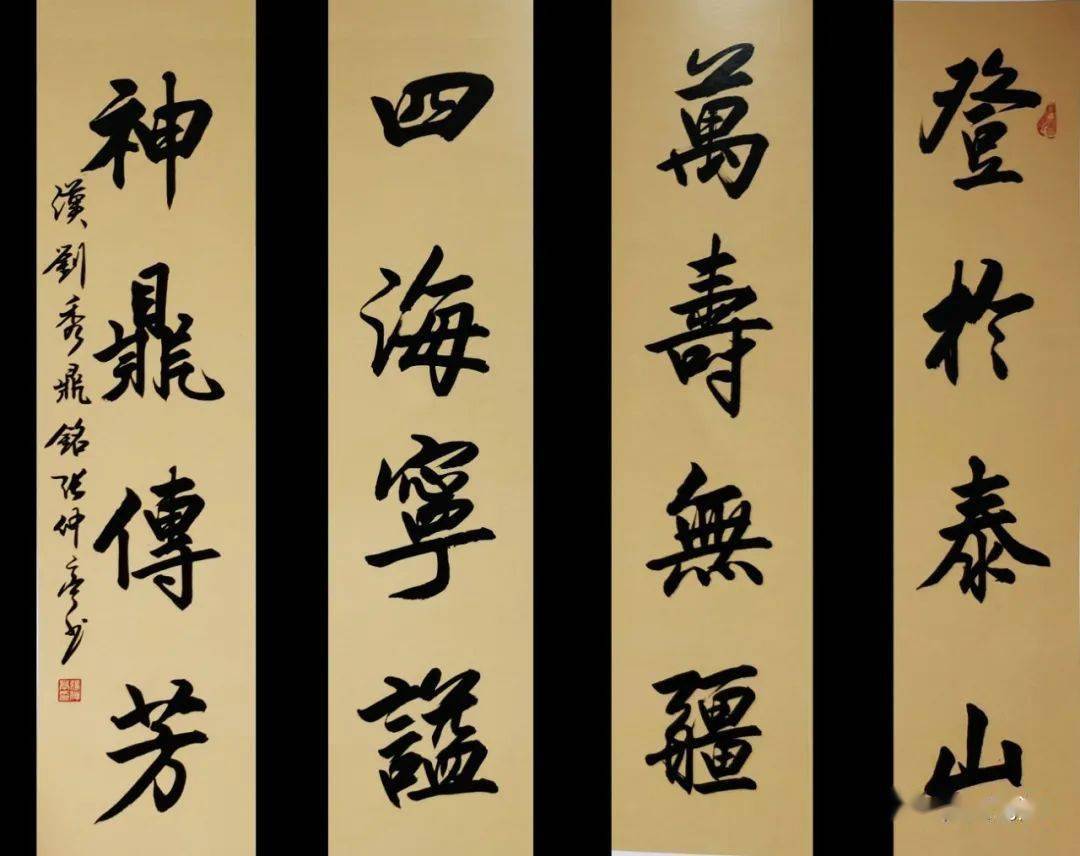 登於泰山
萬壽無疆
四海寧謐
神鼎傳芳
漢劉秀鼎銘張仲亭书